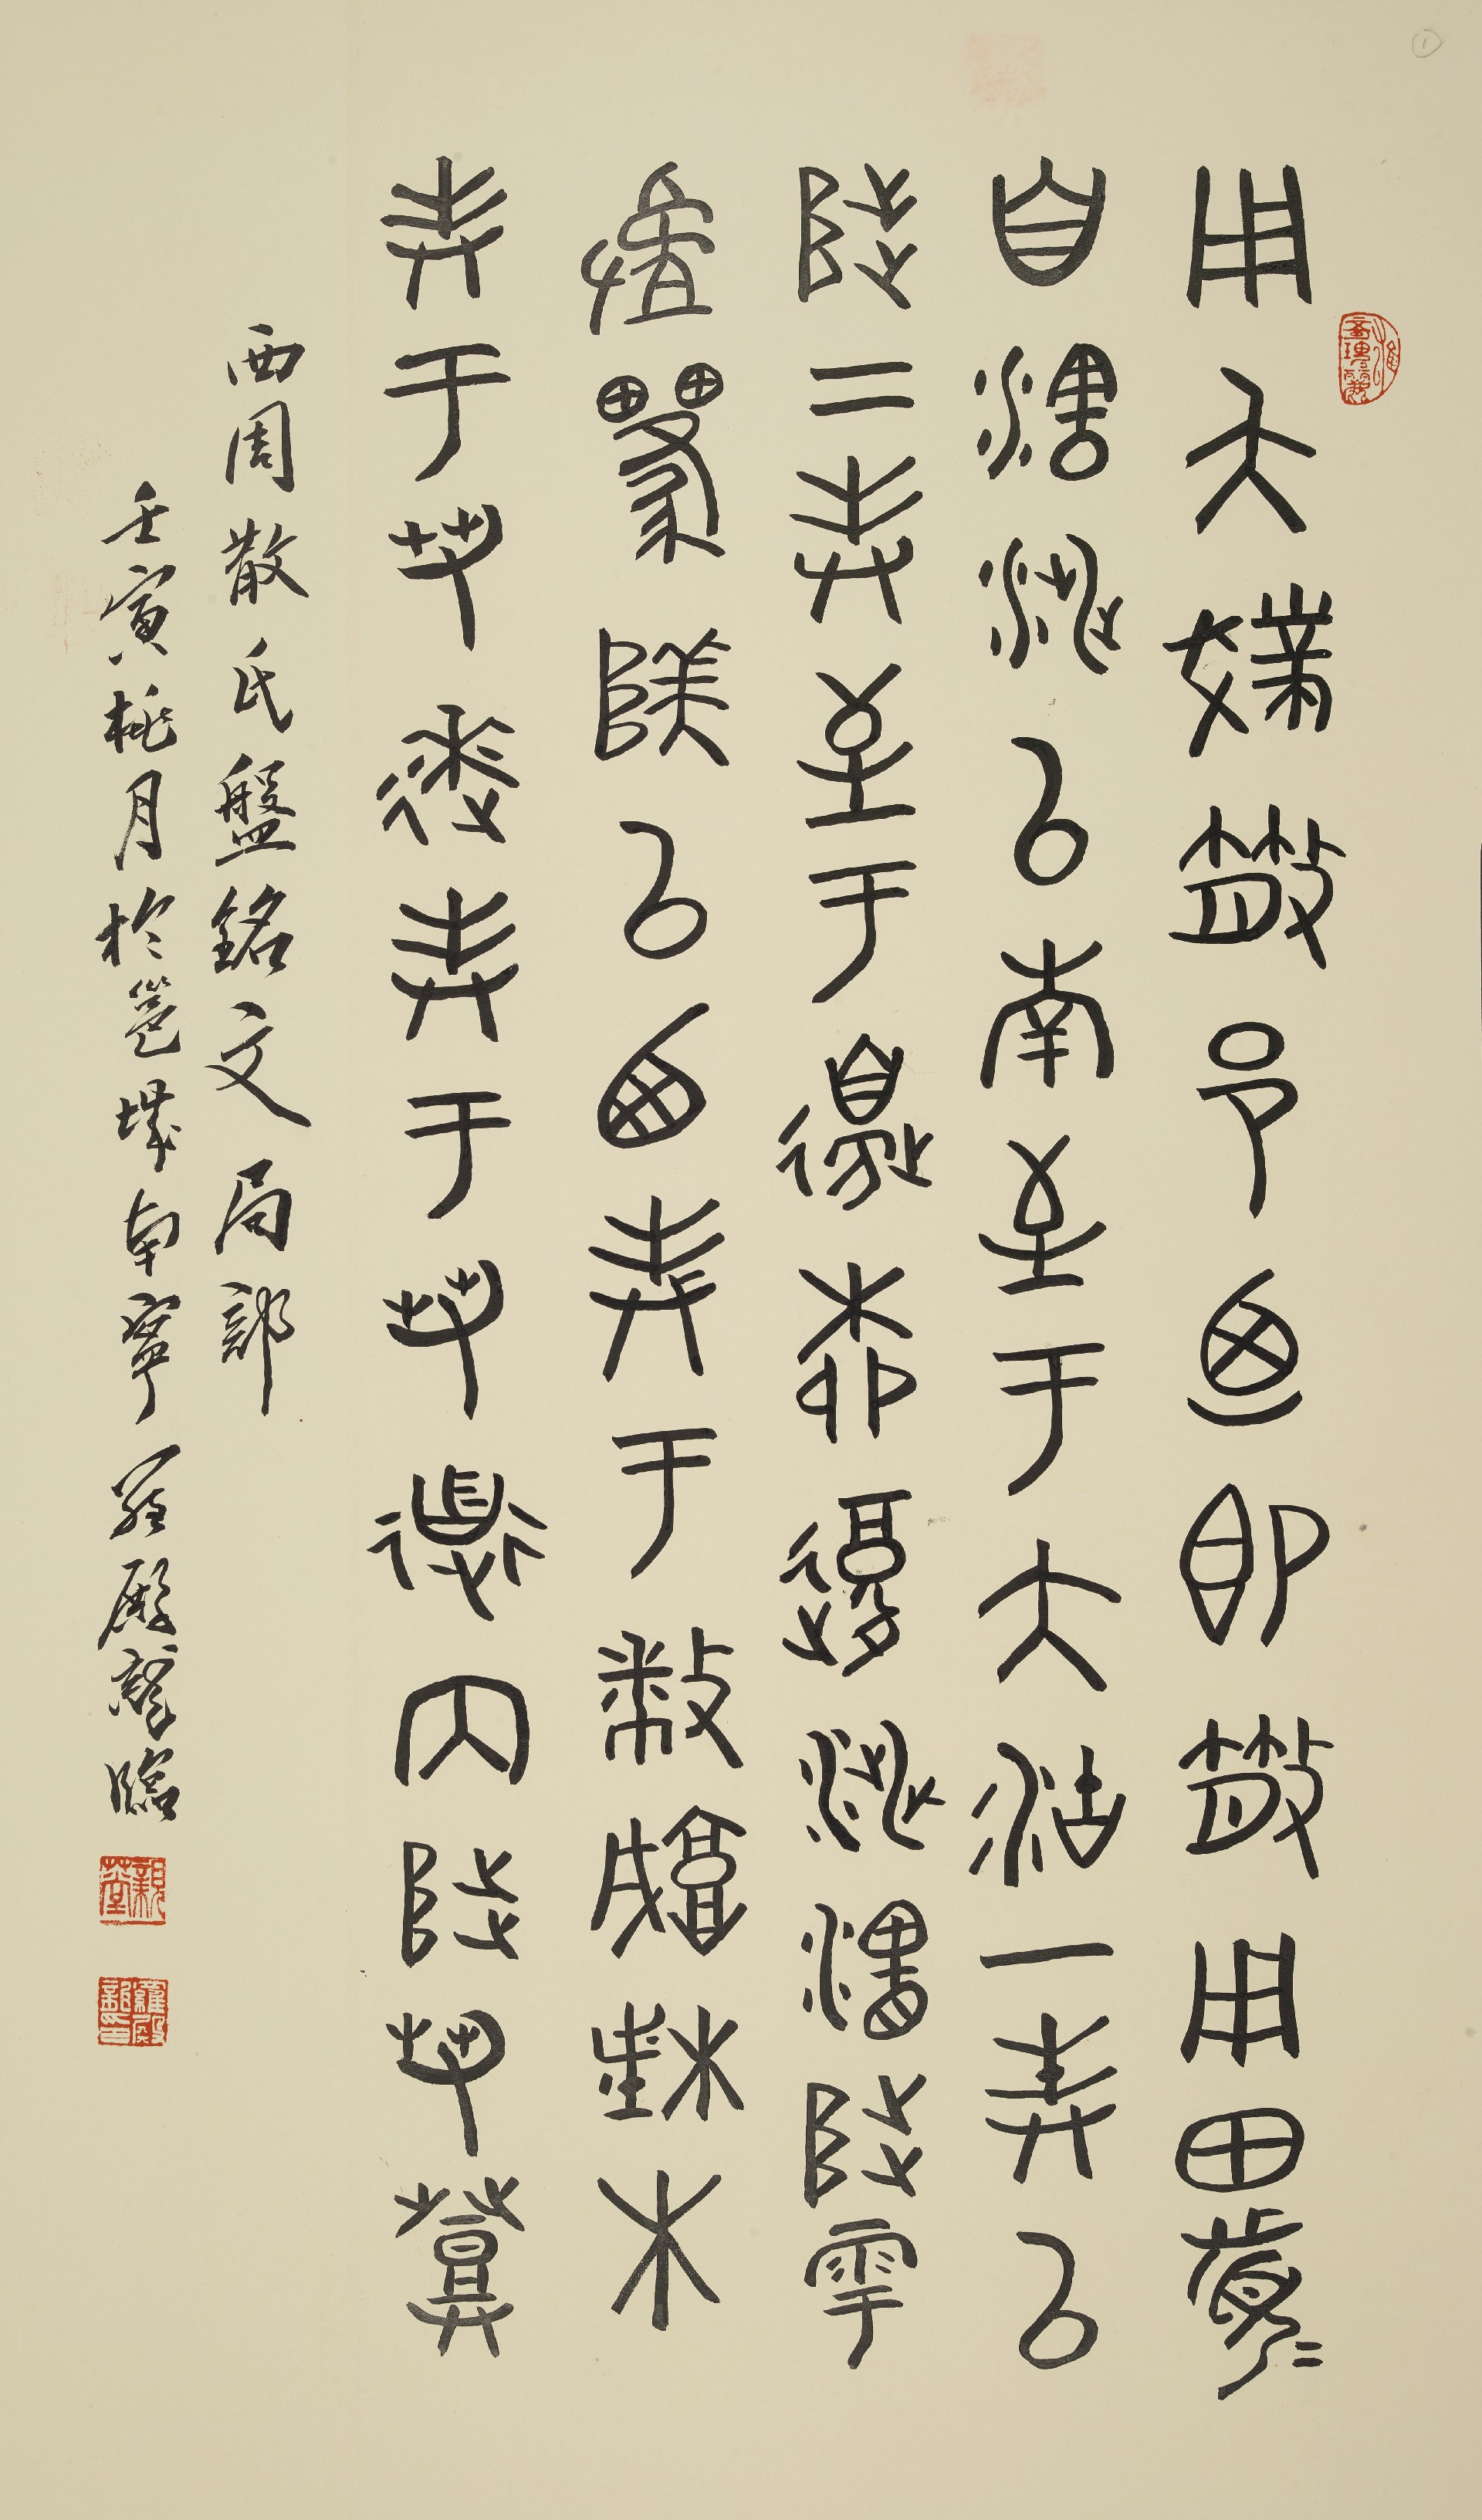 用夨撲散邑迺即散用田眉
自瀗涉以南至于大沽一奉以
陟二奉至于邊柳復涉瀗陟雩
以西奉于敝城楮木
奉于芻逨奉于芻道内陟芻
西周散氏盤銘文局部
壬寅桃月於邕城南寧 羅殿臨